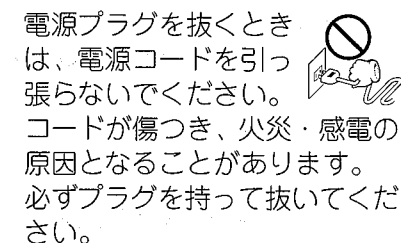 電源プラグを抜くとき
は、電源コードを引っ
張らないでください。
コードが傷つき、火災・感電の
原因となることがあります。
必ずプラグを持って抜いてくだ
さい。